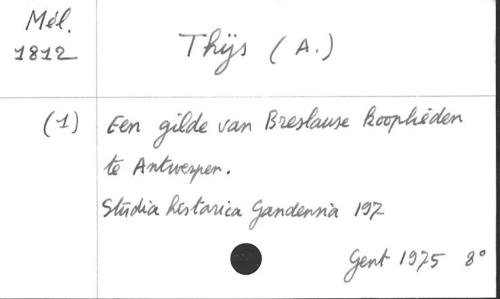 Mél.
1812
Thijs (A.)
(1) Een gilde van Breslause kooplieden
te Antwerpen.
Studia historica Gandensia 197
Gent 1975 8°